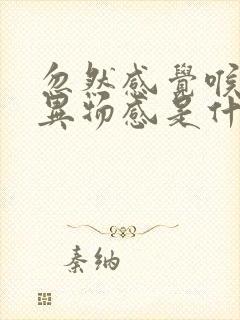 忽然感覺喉
異物感是什
秦纳